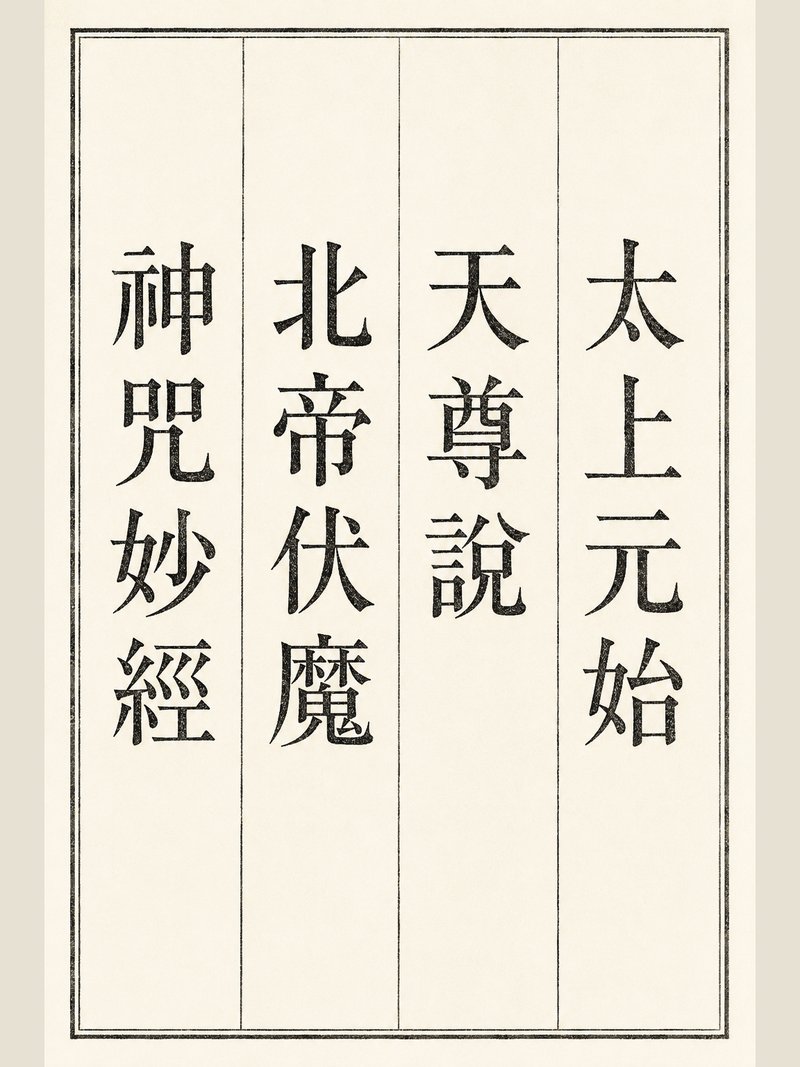 太上元始
天尊說
北帝伏魔
神咒妙經